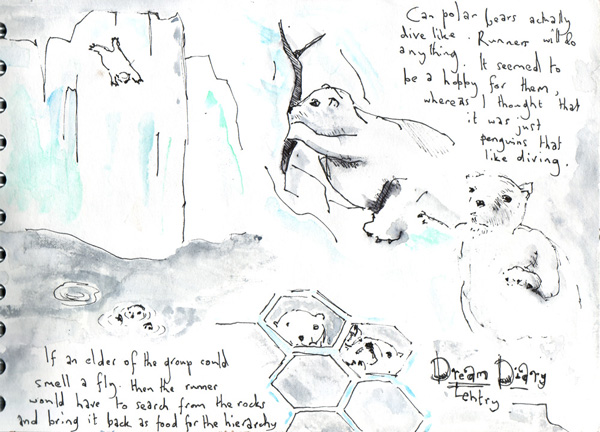 Can polar bears actually
dive like. Runners will do
anything. It seemed to
be a hobby for them,
whereas I thought that
it was just
penguins that
like diving.
If an elder of the group could
smell a fly. then the runner
would have to search from the rocks
and bring it back as food for the hierarchy
Dream Diary
1 entry